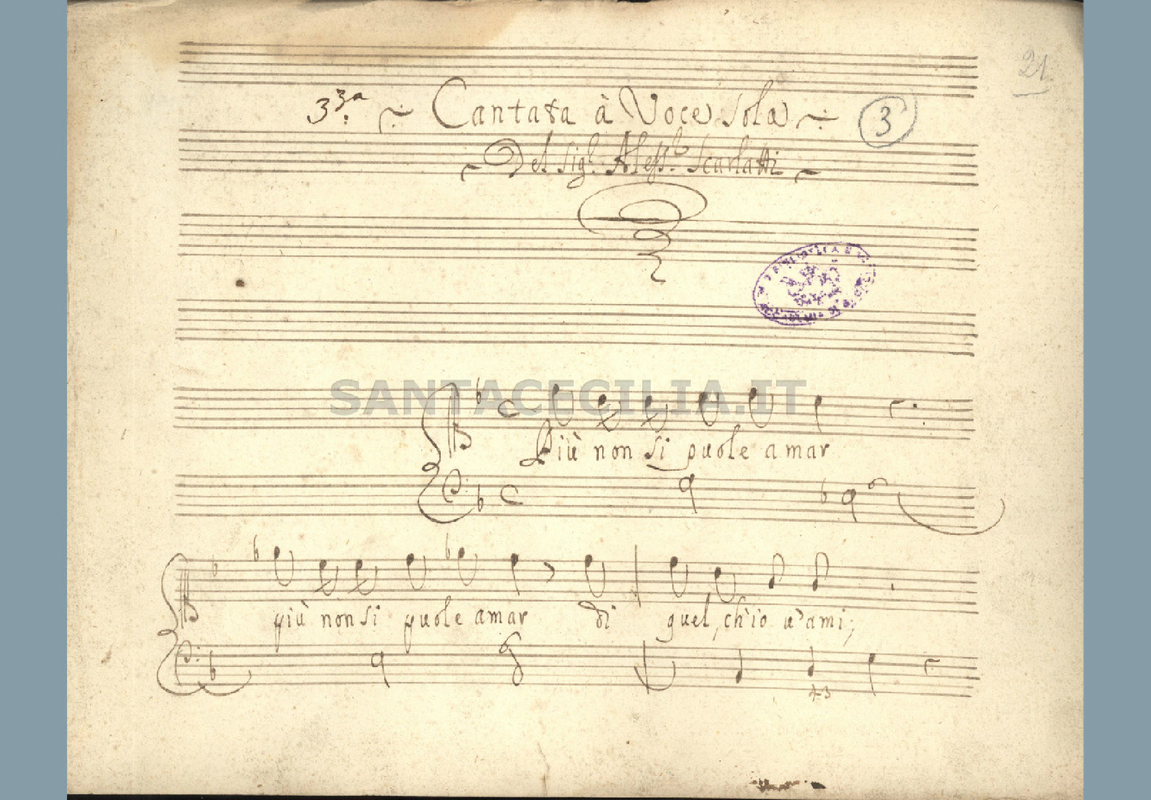 21.
33.ª Cantata à Voce sola 3
Del Sig.r Aless.o Scarlatti
SANTACECILIA.IT
Più non si puole amar
più non si puole amar di quel, ch'io v'ami;
43